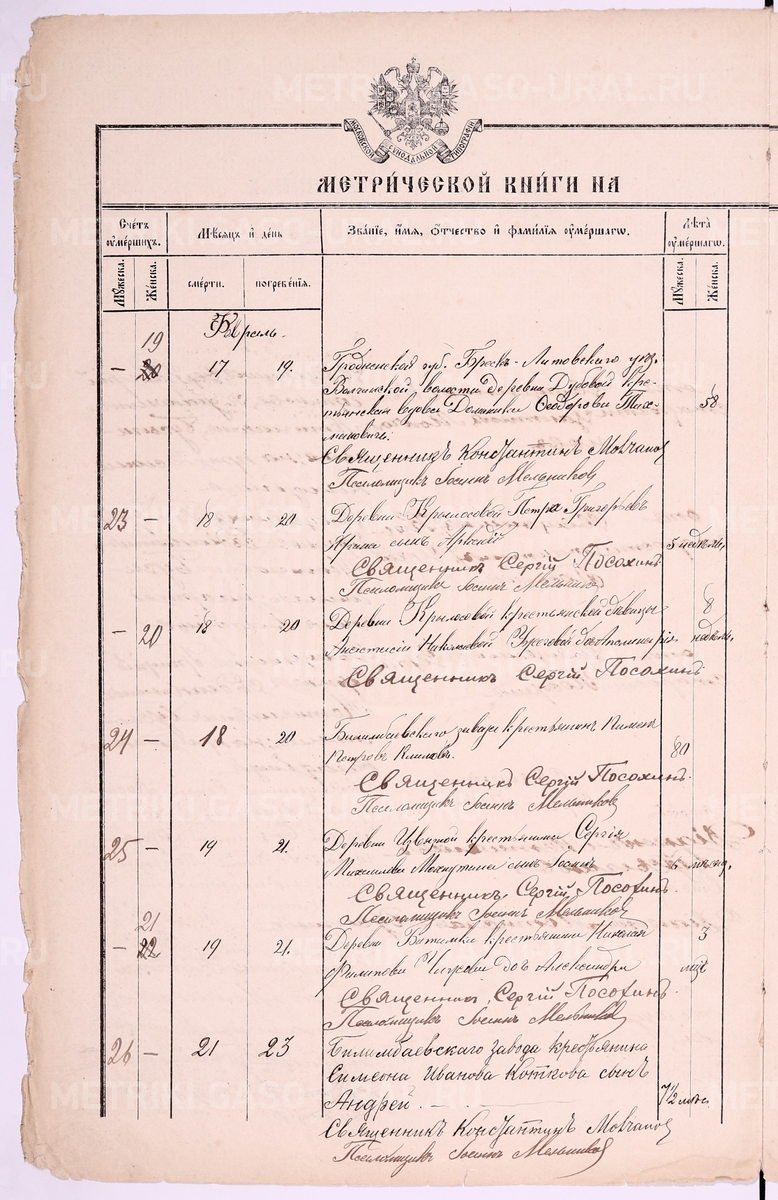 МОСКОВСКОЙ СѴНОДАЛЬНОЙ ТИПОГРАФІИ
МЕТРИ́ЧЕСКОЙ КНИ́ГИ НА
Счетъ оумершихъ.
Мѣсяцъ и день
Зва́нїе, и҆́мѧ, ѻ҆́тчество и фами́лїѧ оумершагѡ.
Лѣта оумершагѡ.
Мꙋжеска.
Женска.
смерти.
погребе́нїѧ.
Мꙋжеска.
Женска.
Февраль.
19
— 20 17 19. Гродненской губ. Брестъ-Литовскаго уѣз.
Волчинской волости деревни Дубовой кре-
стьянская вдова Домникія Ѳеодорова Тих-
58
миновичъ.
Священникъ Константинъ Молчанов
Псаломщикъ Іосифъ Мельниковъ
23 — 18 20 Деревни Крылосовой Петра Григорьева
сынъ Арсеній
5 недѣль,
Священникъ Сергій Посохинъ
Псаломщикъ Іосифъ Мельников
— 20 18 20 Деревни Крылосовой крестьянской дѣвицы
8
Анастасіи Николаевой
недѣль,
Священникъ Сергій Посохинъ
24 — 18 20 Билимбаевскаго завода крестьянинъ Пименъ
Петровъ
80
Священникъ Сергій Посохинъ.
Псаломщикъ Іосифъ Мельников
25 — 19 21. Деревни Извѣзной крестьянина Сергія
Михаилова сынъ Іосифъ
Священникъ Сергій Посохинъ.
Псаломщикъ Іосифъ Мельников
21
— 22 19 21. Деревни Битимки крестьянина Николая
3
Филипова дочь Александра
мѣс
Священникъ Сергій Посохинъ.
Псаломщикъ Іосифъ Мельников
26 — 21 23 Билимбаевскаго завода крестьянина
Симеона Иванова Коткова сынъ
Андрей.
7½ мѣс.
Священникъ Константинъ Молчанов
Псаломщикъ Іосифъ Мельников
METRIKI.GASO-URAL.RU